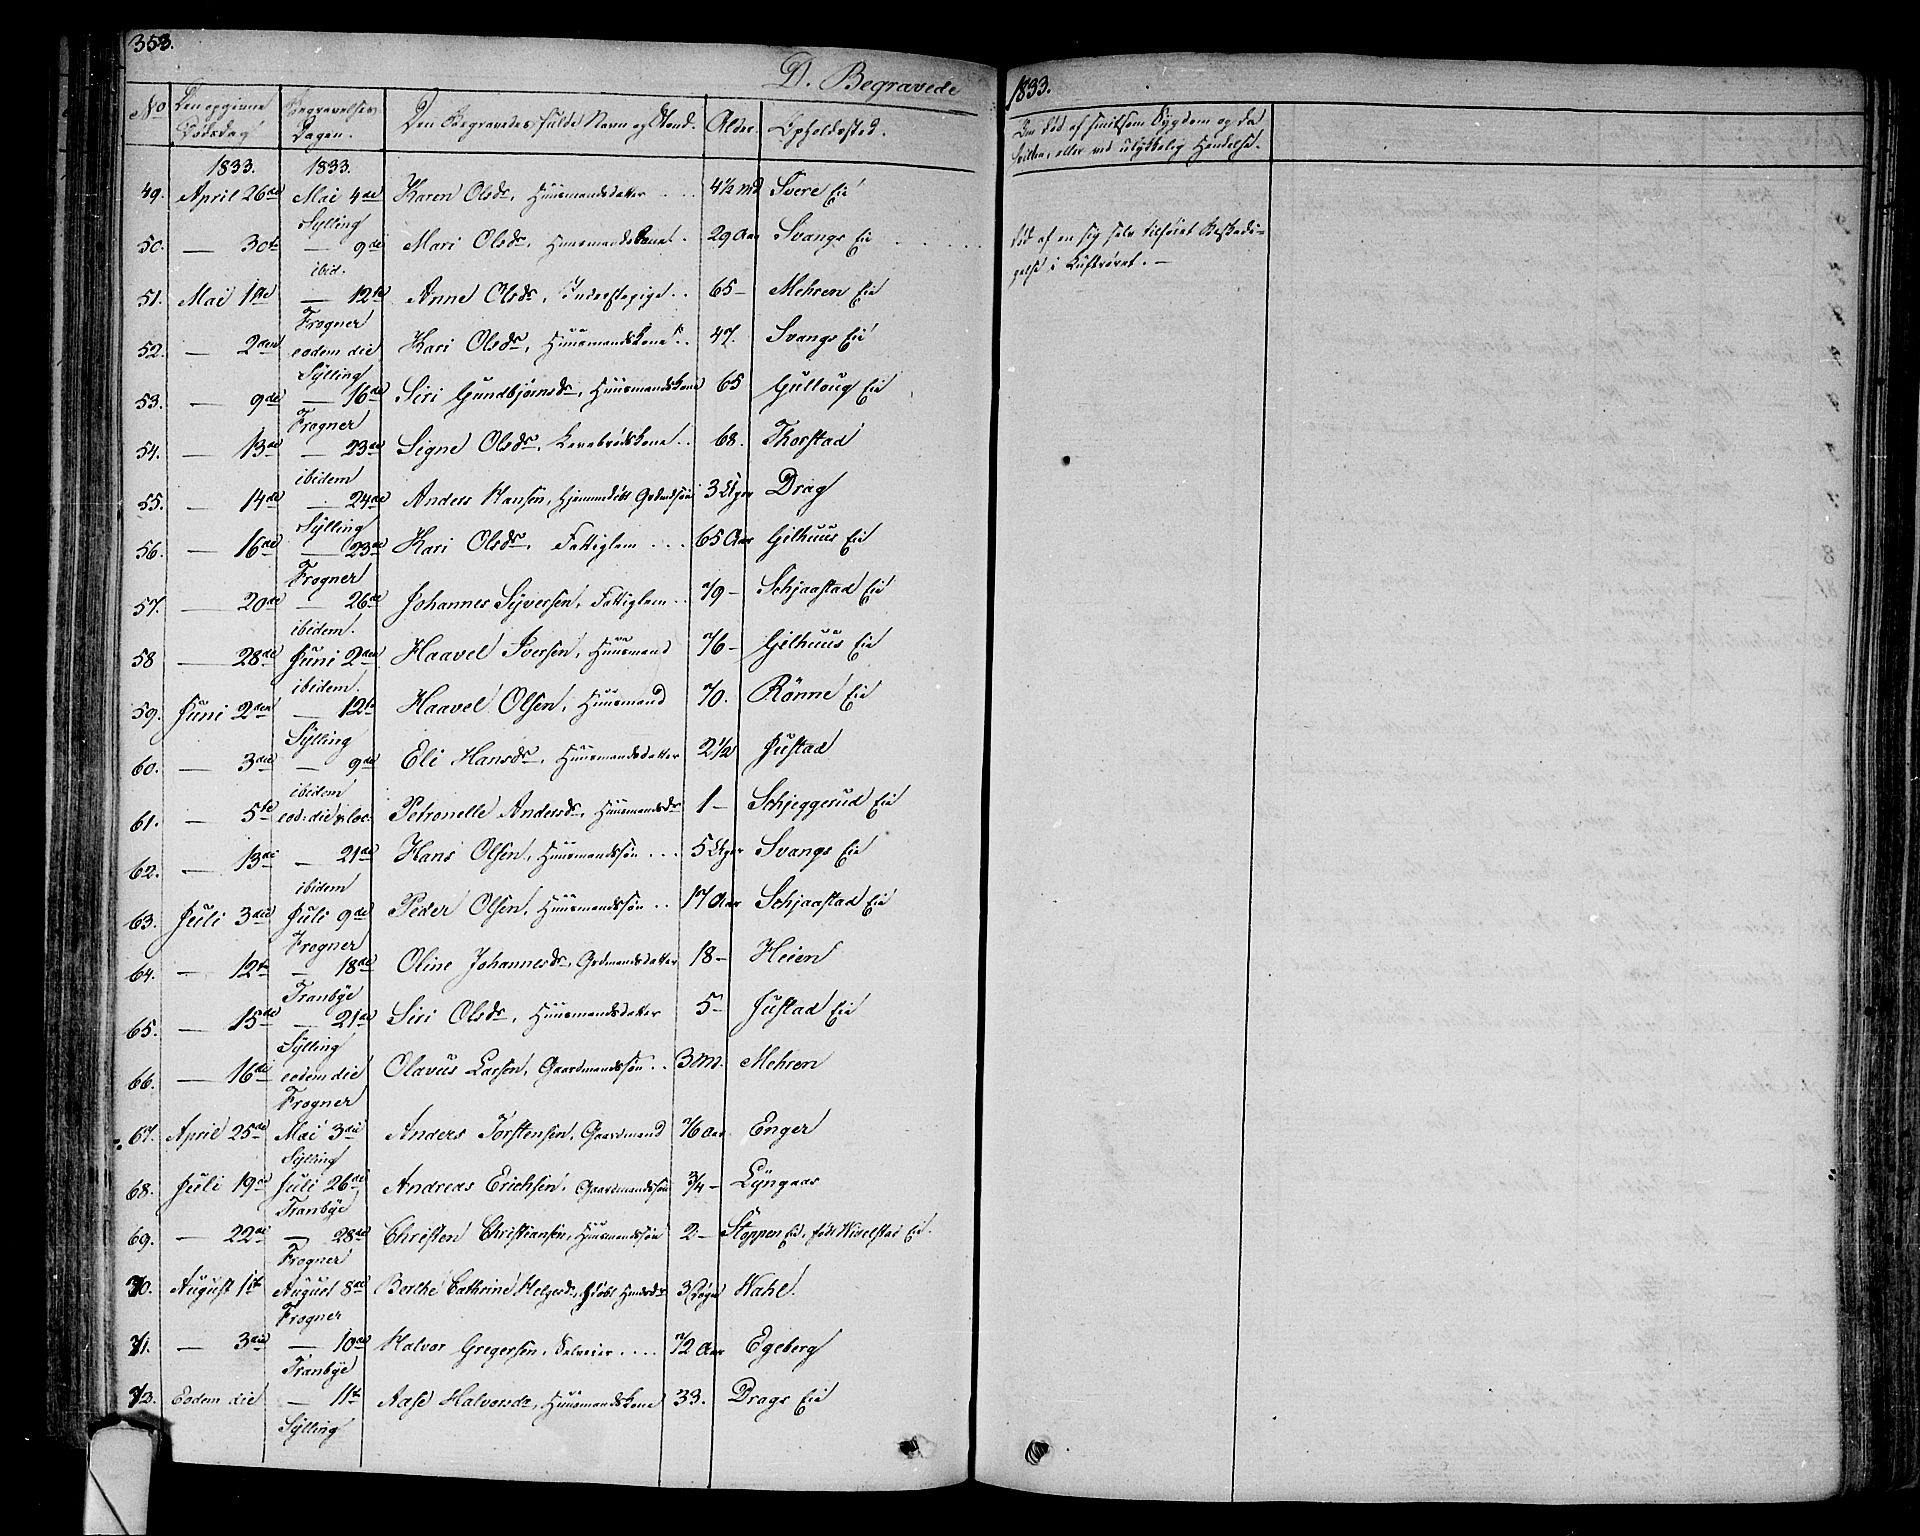 353.
D. Begravede
1833.
No Den opgivne Dødsdag Begravelses Dagen. Den Begravedes fulde Navn og Stand. Alder. Opholdssted.
Om død af smitsom Sygdom og da hvilken, eller ved ulykkelig Hendelse.
1833. 1833.
49. April 26de Mai 4de Karen Olsdr, Huusmandsdatter ... 4½ Md Svere Eie
Sylling
50. — 30te — 9de Mari Olsdr, Huusmandskone. 29 Aar Svangs Eie død af en sig selv tilføiet Beskadi-
gelse i Luftrøret. —
ibid.
51. Mai 1ste — 12te Anne Olsdr, Inderstepige .. 65 — Mehren Eie
Frogner
52. — 2den eodem die Kari Olsdr, Huusmandskone .. 47. Svangs Eie
Sylling
53. — 9de — 16de Siri Gundbjørnsdr, Huusmandskone 65 Gulloug Eie
Frogner
54. — 13de — 23de Signe Olsdr, Levebrødskone .. 68. Thorstad
ibidem
55. — 14de — 24de Anders Hansen, Hjemmedøbt Grdmdsøn 3 Uger Drag
Sylling
56. — 16de — 23de Kari Olsdr, Fattiglem .... 65 Aar Gilhuus Eie
Frogner
57. — 20de — 26de Johannes Syversen, Fattiglem .. 79 — Schjaastad Eie
ibidem.
58 — 28de Juni 2den Haavel Iversen, Huusmand 76 — Gilhuus Eie
ibidem.
59. Juni 2den — 12te Haavel Olsen, Huusmand 70. Rönne Eie
Sylling
60. — 3die — 9de Eli Hansdr, Huusmandsdatter 2½ Justad
ibidem
61. — 5te eod: die & loc: Petronelle Andersdr, Huusmandsdr 1 — Schjeggerud Eie
62. — 13de — 21de Hans Olsen, Huusmandssøn .... 5 Uger Svangs Eie
ibidem
63. Juli 3die Juli 9de Peder Olsen, Huusmandssøn .. 17 Aar Schjaastad Eie
Frogner
64. — 12te — 18de Oline Johannesdr, Grdmandsdatter 18 — Heien
Tranbye
65. — 15de — 21de Siri Olsdr, Huusmandsdatter 5 — Justad Eie
Sylling
66. — 16de eodem die Olavus Larsen, Gaardmandssøn .. 3 Md. Mehren
Frogner
67. April 25de Mai 3die Anders Torstensen, Gaardmand 76 Aar Enger
Sylling
68. Juli 19de Juli 26de Andreas Erichsen, Gaardmandssøn ¾ — Lyngaas
Tranbye
69. — 22de — 28de Christen Christiansen, Huusmandssøn 2 — Stoppen Eie, født Wivelstad Eie.
Frogner
70. August 1ste August 8de Berthe Cathrine Helgesdr, 3 Dage Wahl.
Frogner
71. — 3die — 10de Halvor Gregersen, Selveier .... 72 Aar Egeberg
Tranbye
73. Eodem die — 11te Aase Halvorsdr, Huusmandskone 33. Drags Eie
Sylling